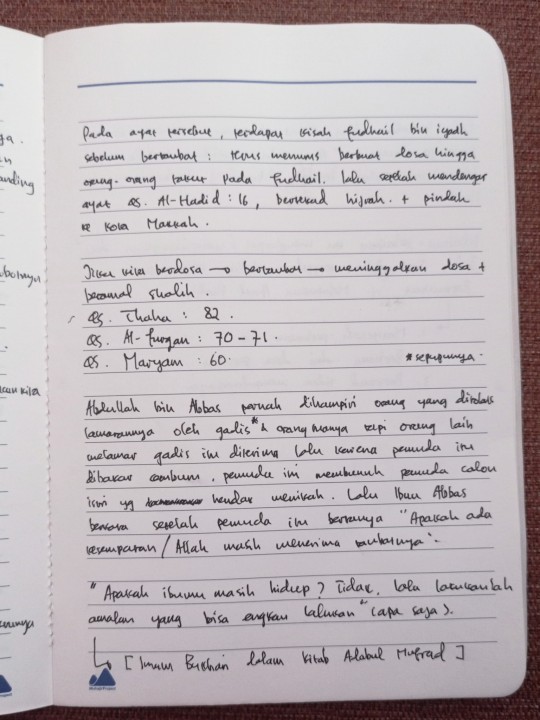 ya.
n
anding
kan kita
Pada ayat tersebut, terdapat kisah fudhail bin iyadh
sebelum bertaubat : terus menerus berbuat dosa hingga
orang-orang takut pada fudhail. lalu setelah mendengar
ayat QS. Al-Hadid : 16, bertekad hijrah. + pindah
ke kota Makkah.
Jika kita berdosa → bertaubat → meninggalkan dosa +
beramal shalih.
QS. Thaha : 82.
QS. Al-furqan : 70 - 71.
QS. Maryam : 60.
* sepupunya.
Abdullah bin Abbas pernah dihampiri orang yang ditolak
lamarannya oleh gadis* & orang tuanya tapi orang lain
melamar gadis itu diterima lalu karena pemuda itu
dibakar cemburu, pemuda ini membunuh pemuda calon
istri yg hendak menikah. Lalu Ibnu Abbas
berkata setelah pemuda itu bertanya "Apakah ada
kesempatan / Allah masih menerima taubatnya".
"Apakah ibumu masih hidup? Tidak, lalu lakukanlah
amalan yang bisa engkau lakukan" (apa saja).
↳ [ Imam Bukhari dalam kitab Adabul Mufrad ]